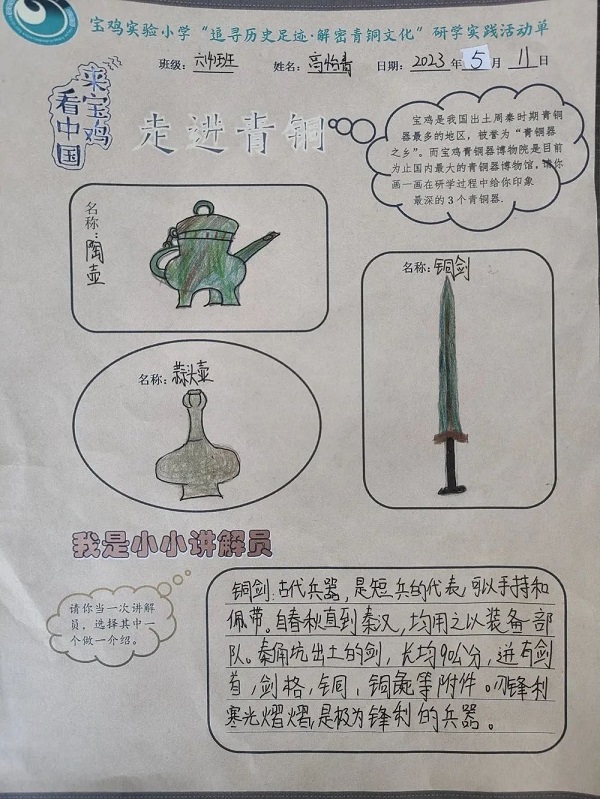 宝鸡实验小学“追寻历史足迹·解密青铜文化”研学实践活动单
班级：六班 姓名：高怡青 日期：2023年5月11日
来宝鸡
看中国
走进青铜
宝鸡是我国出土周秦时期青铜
器最多的地区，被誉为“青铜器
之乡”。而宝鸡青铜器博物院是目前
为止国内最大的青铜器博物馆，请你
画一画在研学过程中给你印象
最深的3个青铜器.
名称：陶壶
名称：铜剑
名称：蒜头壶
我是小小讲解员
请你当一次讲解
员，选择其中一
个做一介绍。
铜剑：古代兵器，是短兵的代表，可以手持和
佩带。自春秋直到秦汉，均用之以装备部
队。秦俑坑出土的剑，长均90公分，并有剑
首，剑格，铜等附件。刃锋利
寒光熠熠，是极为锋利的兵器。